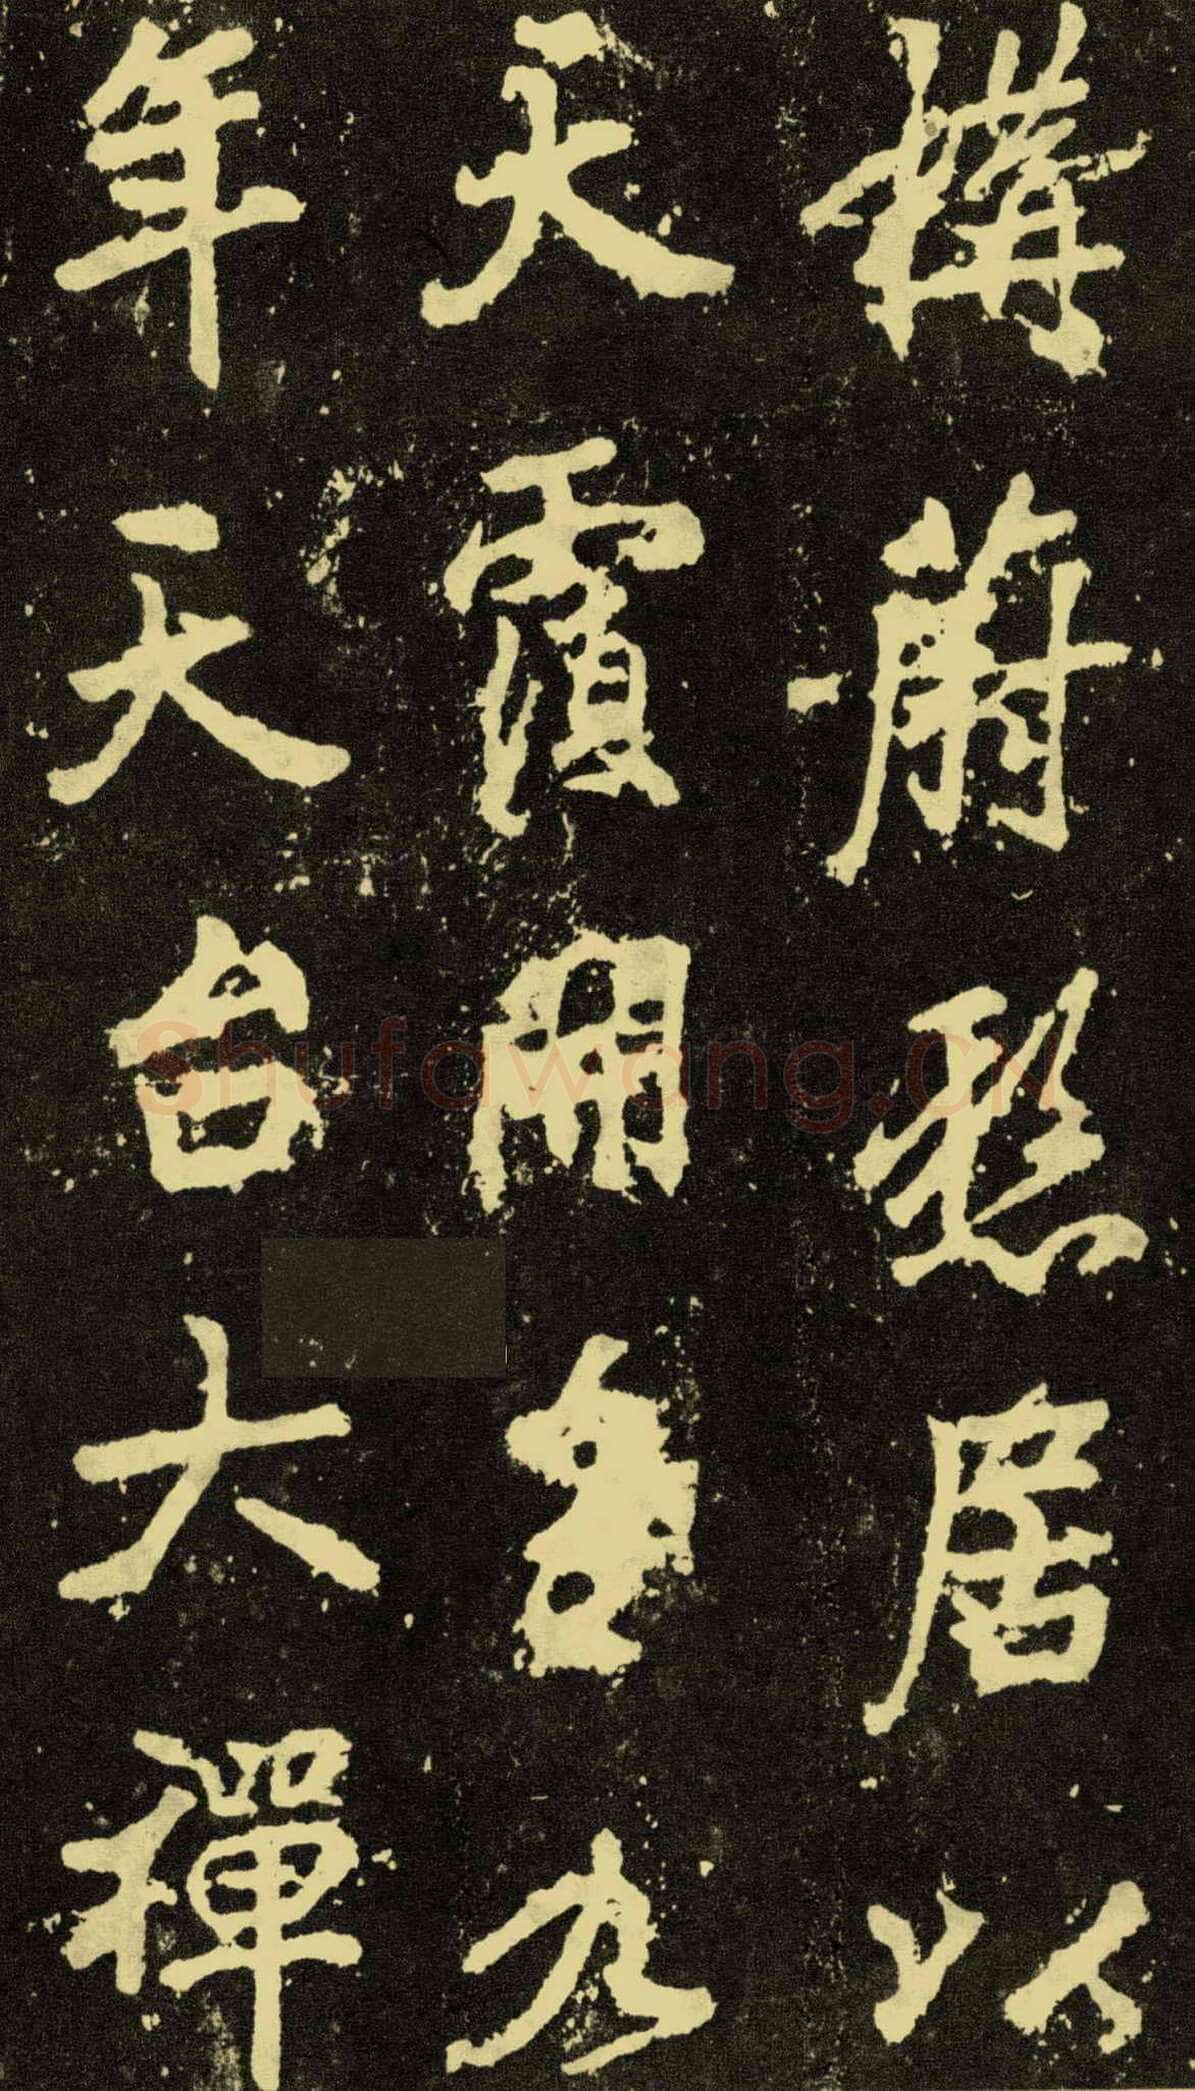 構蔚居以
天覆開皇九
年天台大禪
Shufawang.CN